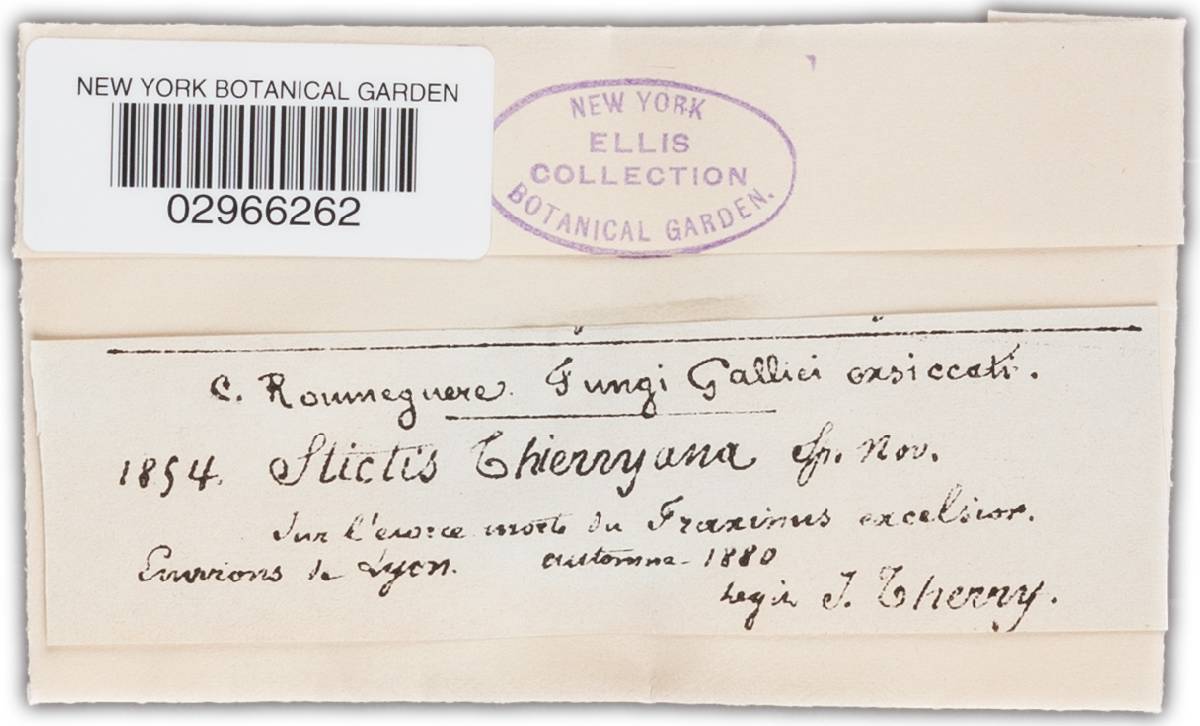 NEW YORK BOTANICAL GARDEN
02966262
NEW YORK
ELLIS
COLLECTION
BOTANICAL GARDEN.
C. Roumeguere. Fungi Gallici exsiccati.
1854. Stictis Thierryana Sp. Nov.
Sur l'ecorce morte du Fraxinus excelsior.
Environs de Lyon. automne 1880
Legit J. Therry.